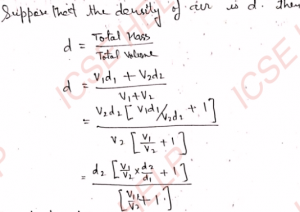 Suppose that the density of air is d. Then
d = Total Mass / Total Volume
d = V₁d₁ + V₂d₂ / V₁+V₂
= V₂d₂ [ V₁d₁/V₂d₂ + 1 ] / V₂ [ V₁/V₂ + 1 ]
= d₂ [ V₁/V₂ × d₂/d₁ + 1 ] / [ V₁/V₂ + 1 ]
ICSE HELP
ICSE HELP